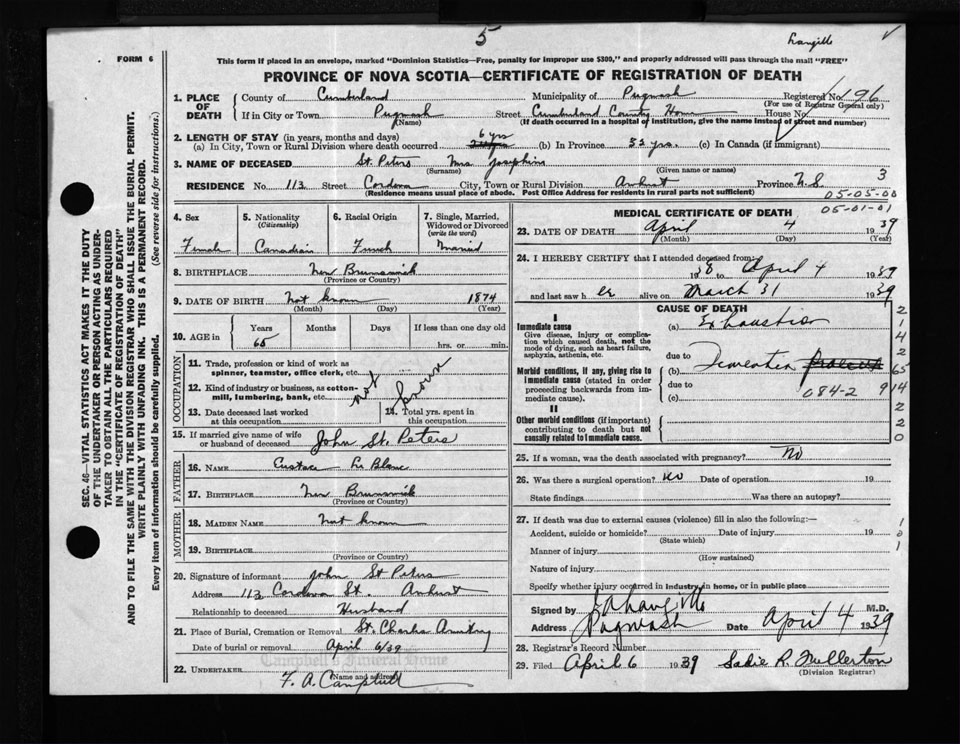 5
Langille
FORM 6
This form if placed in an envelope, marked "Dominion Statistics—Free, penalty for improper use $300," and properly addressed will pass through the mail "FREE"
PROVINCE OF NOVA SCOTIA—CERTIFICATE OF REGISTRATION OF DEATH
1. PLACE OF DEATH
County of Cumberland Municipality of Pugwash Registered No. 196
(For use of Registrar General only)
If in City or Town Pugwash Street Cumberland County Home House No.
(Name) (If death occurred in a hospital or institution, give the name instead of street and number)
2. LENGTH OF STAY (in years, months and days)
(a) In City, Town or Rural Division where death occurred 6 yrs (b) In Province 53 yrs. (c) In Canada (if immigrant)
3. NAME OF DECEASED St. Peters Mrs Josephine
(Surname) (Given name or names)
3
RESIDENCE No. 113 Street Cordova City, Town or Rural Division Amherst Province N.S.
(Residence means usual place of abode. Post Office Address for residents in rural parts not sufficient)
05-05-00
05-01-01
4. Sex
Female
5. Nationality
(Citizenship)
Canadian
6. Racial Origin
French
7. Single, Married, Widowed or Divorced
(write the word)
Married
8. BIRTHPLACE New Brunswick
(Province or Country)
9. DATE OF BIRTH Not known 1874
(Month) (Day) (Year)
10. AGE in
Years Months Days If less than one day old
65 hrs. or min.
OCCUPATION
11. Trade, profession or kind of work as spinner, teamster, office clerk, etc.
12. Kind of industry or business, as cotton-mill, lumbering, bank, etc.
not known
13. Date deceased last worked at this occupation
14. Total yrs. spent in this occupation
15. If married give name of wife or husband of deceased John St. Peters
FATHER
16. Name Eustace Le Blanc
17. Birthplace New Brunswick
(Province or Country)
MOTHER
18. Maiden Name Not known
19. Birthplace
(Province or Country)
20. Signature of informant John St Peters
Address 113 Cordova St. Amherst
Relationship to deceased Husband
21. Place of Burial, Cremation or Removal St. Charles Amherst
Date of burial or removal April 6/39
Campbell's Funeral Home
22. UNDERTAKER F. A. Campbell
(Name and address)
MEDICAL CERTIFICATE OF DEATH
23. DATE OF DEATH April 4 1939
(Month) (Day) (Year)
24. I HEREBY CERTIFY that I attended deceased from:
1938 to April 4 1939
and last saw her alive on March 31 1939
CAUSE OF DEATH
I
Immediate cause
Give disease, injury or complication which caused death, not the mode of dying, such as heart failure, asphyxia, asthenia, etc.
(a) Exhaustion
due to
Morbid conditions, if any, giving rise to immediate cause (stated in order proceeding backwards from immediate cause).
(b) Dementia
due to
084-2
(c)
II
Other morbid conditions (if important) contributing to death but not causally related to immediate cause.
2
1
4
2
65
9 14
2
2
0
25. If a woman, was the death associated with pregnancy? No
26. Was there a surgical operation? No Date of operation 19
State findings Was there an autopsy?
27. If death was due to external causes (violence) fill in also the following:—
Accident, suicide or homicide? Date of injury 19
(State which)
Manner of injury
(How sustained)
Nature of injury
Specify whether injury occurred in industry, in home, or in public place
Signed by M.D.
Address Pugwash Date April 4 1939
28. Registrar's Record Number
29. Filed April 6 1939 Sadie R. Fullerton
(Division Registrar)
SEC. 46—VITAL STATISTICS ACT MAKES IT THE DUTY
OF THE UNDERTAKER OR PERSON ACTING AS UNDER-
TAKER TO OBTAIN ALL THE PARTICULARS REQUIRED
IN THE "CERTIFICATE OF REGISTRATION OF DEATH"
AND TO FILE THE SAME WITH THE DIVISION REGISTRAR WHO SHALL ISSUE THE BURIAL PERMIT.
WRITE PLAINLY WITH UNFADING INK. THIS IS A PERMANENT RECORD.
Every item of information should be carefully supplied. (See reverse side for instructions.)